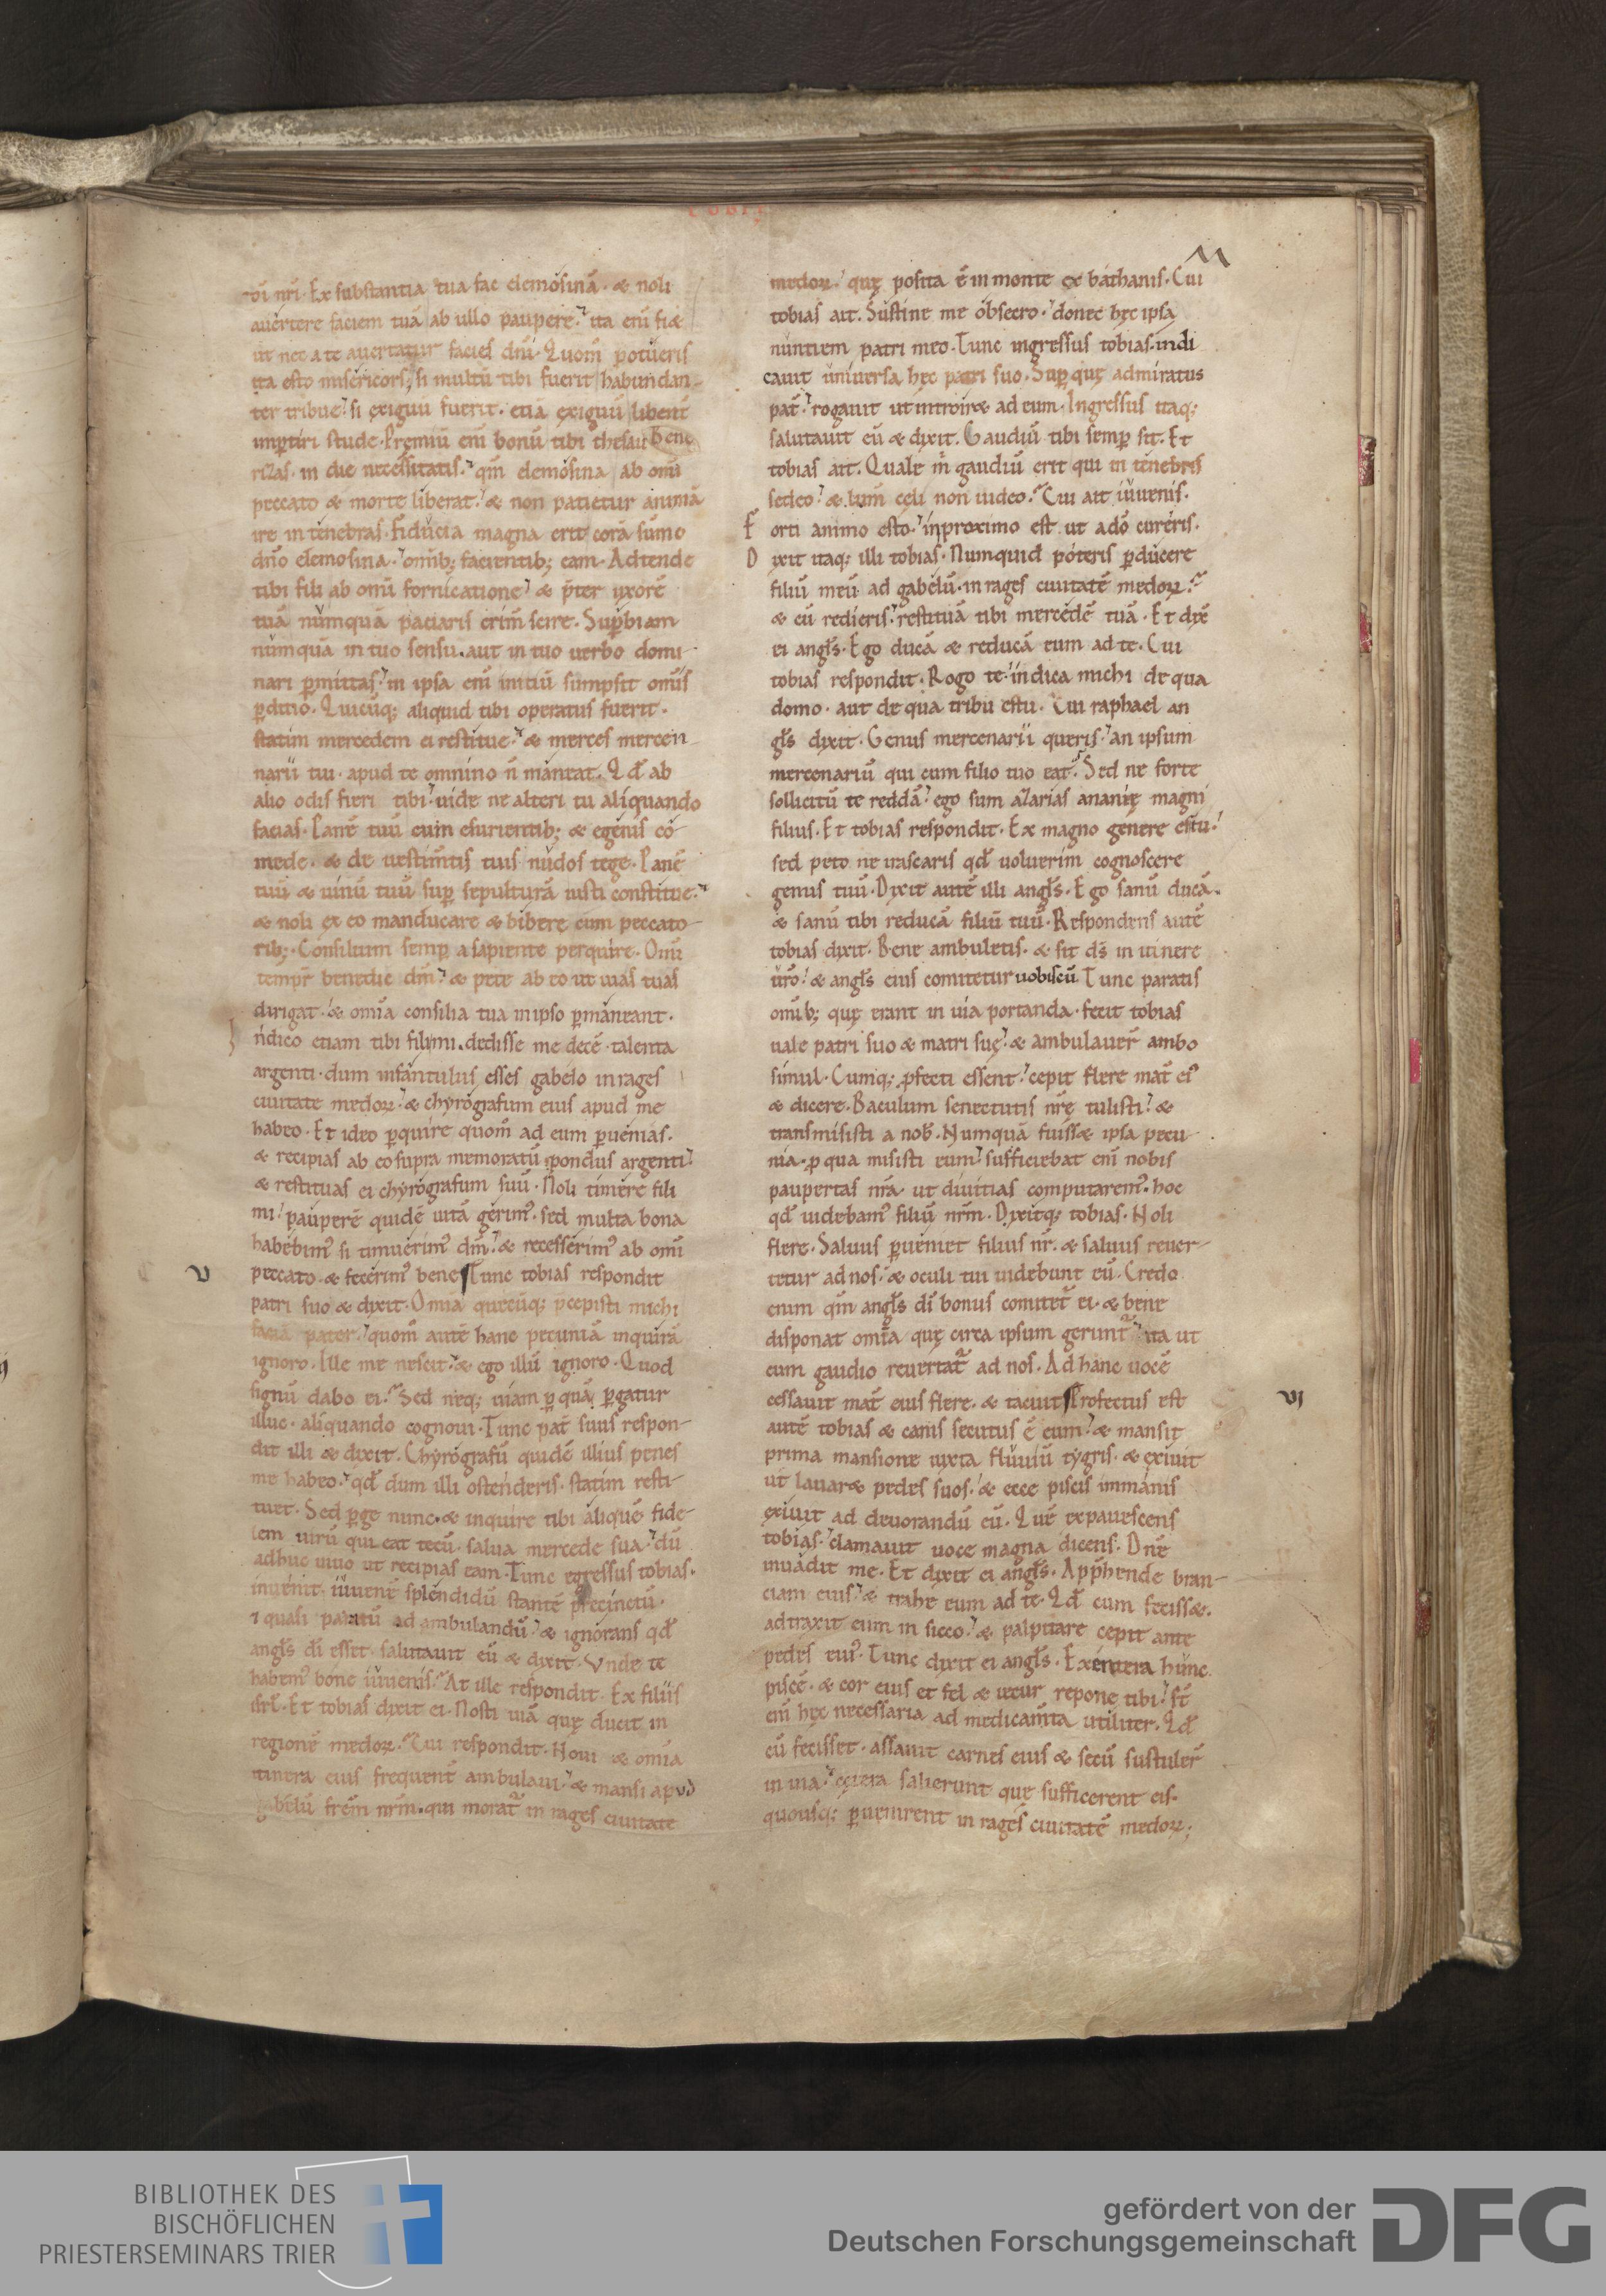 TOBI
di nr̄i. Ex substantia tua fac elemosinā. & noli
auertere faciem tuā ab ullo paupere. ita eni fi&
ut nec a te auertatur facies dn̄i. Quom̄ potueris
ita esto misericors, si multū tibi fuerit habundan-
ter tribue. si exiguū fuerit. etiā exiguū libent̄
imꝑtiri stude. Premiū eni bonū tibi thesau
rizas. in die necessitatis. qm̄ elemosina ab omi
peccato & morte liberat. & non patietur animā
ire in tenebras. Fiducia magna erit corā sūmo
dn̄o elemosina. om̄ib; facientib; eam. Adtende
tibi fili ab omi fornicatione & p̄ter uxorē
tuā numquā paciaris crim̄ scire. Suꝑbiam
numquā in tuo sensu. aut in tuo uerbo domi
nari ꝑmittas. in ipsa eni initiū sumpsit om̄is
ꝑditio. Quicūq; aliquid tibi operatus fuerit.
statim mercedem ei restitue. & merces mercen-
narii tui. apud te omnino n̄ maneat. Qđ ab
alio odis fieri tibi. uide ne alteri tu aliquando
facias. Panē tuū cum esurientib; & egenis co-
mede. & de uestim̄tis tuis nudos tege. Panē
tuū & uinū tuū suꝑ sepulturā iusti constitue.
& noli ex eo manducare & bibere cum peccato-
rib;. Consilium semꝑ a sapiente perquire. Omi
tempr̄ benedic dm̄. & pete ab eo ut uias tuas
dirigat. & om̄ia consilia tua in ipso ꝑmaneant.
I ndico etiam tibi fili mi. dedisse me decē talenta
argenti. dum infantulus esses gabelo in rages
ciuitate medoꝝ. & chyrografum eius apud me
habeo. Et ideo ꝑquire quom̄ ad eum ꝑuenias.
& recipias ab eo supra memoratū pondus argenti.
& restituas ei chyrografum suū. Noli timere fili
mi. pauperē quidē uitā gerim'. sed multa bona
habebim' si timuerim' dm̄. & recesserim' ab omi
V
peccato. & fecerim' bene. Tunc tobias respondit
patri suo & dixit. Omia quecūq; p̄cepisti michi
faciā pater. quom̄ autē hanc pecuniā inquirā
ignoro. Ille me nescit. & ego illū ignoro. Quod
signū dabo ei. Sed neq; uiam ꝑ quā ꝑgatur
illuc. aliquando cognoui. Tunc pat̄ suus respon-
dit illi & dixit. Chyrografū quidē illius penes
me habeo. qđ dum illi ostenderis. statim resti-
tuet. Sed ꝑge nunc. & inquire tibi aliquē fide-
lem uirū qui eat tecū. salua mercede sua. dū
adhuc uiuo ut recipias eam. Tunc egressus tobias.
inuenit iuuenē splendidū stantē precinctū.
⁊ quasi paratū ad ambulandū. & ignorans qđ
angl̄s di esset. salutauit eū & dixit. Vnde te
habem' bone iuuenis. At ille respondit. Ex filiis
isrl̄. Et tobias dixit ei. Nosti uiā que ducit in
regionē medoꝝ. Cui respondit. Noui & om̄ia
itinera eius frequent̄ ambulaui. & mansi apud
gabelū frēm nr̄m. qui morat̄ in rages ciuitate
medoꝝ. que posita ē in monte exbathanis. Cui
tobias ait. Sustine me obsecro. donec hec ipsa
nuntiem patri meo. Tunc ingressus tobias. indi
cauit uniuersa hec patri suo. Suꝑ que admiratus
pat̄. rogauit ut introir& ad eum. Ingressus itaq;
salutauit eū & dixit. Gaudiū tibi semꝑ sit. Et
tobias ait. Quale m̄ gaudiū erit qui in tenebris
sedeo. & lum̄ celi non uideo. Cui ait iuuenis.
F orti animo esto. in proximo est ut a dō cureris.
D ixit itaq; illi tobias. Numquid poteris ꝑducere
filiū meū ad gabelū. in rages ciuitatē medoꝝ.
& cū redieris. restituā tibi mercedē tuā. Et dix̄
ei angl̄s. Ego ducā & reducā eum ad te. Cui
tobias respondit. Rogo te. indica michi de qua
domo. aut de qua tribu es tu. Cui raphael an
gl̄s dixit. Genus mercenarii queris. an ipsum
mercenariū qui cum filio tuo eat. Sed ne forte
sollicitū te reddā. ego sum azarias ananie magni
filius. Et tobias respondit. Ex magno genere es tu.
sed peto ne irascaris qđ uoluerim cognoscere
genus tuū. Dixit autē illi angl̄s. Ego sanū ducā.
& sanū tibi reducā filiū tuū. Respondens autē
tobias dixit. Bene ambuletis. & sit ds̄ in itinere
ur̄o. & angl̄s eius comitetur uobiscū. Tunc paratis
om̄ib; que erant in uia portanda. fecit tobias
uale patri suo & matri sue. & ambulauer̄ ambo
simul. Cumq; ꝓfecti essent. cepit flere mat̄ ei'
& dicere. Baculum senectutis nr̄e tulisti. &
transmisisti a nob̄. Numquā fuiss& ipsa pecu
nia. ꝑ qua misisti eum. sufficiebat eni nobis
paupertas nr̄a. ut diuitias computarem'. hoc
qđ uidebam' filiū nr̄m. Dixitq; tobias. Noli
flere. Saluus ꝑueniet filius nr̄. & saluus reuer-
tetur ad nos. & oculi tui uidebunt eū. Credo
enim qm̄ angl̄s di bonus comitet̄ ei. & bene
disponat om̄ia que circa ipsum gerunt̄. ita ut
cum gaudio reuertat̄ ad nos. Ad hanc uocē
cessauit mat̄ eius flere. & tacuit. Profectus est
VI
autē tobias & canis secutus ē eum. & mansit
prima mansione iuxta fluuiū tygris. & exiuit
ut lauar& pedes suos. & ecce piscis immanis
exiuit ad deuorandū eū. Quē expauescens
tobias. clamauit uoce magna dicens. Dn̄e
inuadit me. Et dixit ei angl̄s. App̄hende bran-
ciam eius. & trahe eum ad te. Qđ cum feciss&.
adtraxit eum in sicco. & palpitare cepit ante
pedes eius. Tunc dixit ei angl̄s. Exentera hunc
piscē. & cor eius et fel & iecur repone tibi. st̄
eni hec necessaria ad medicam̄ta utiliter. Qđ
cū fecisset. assauit carnes eius & secū sustuler̄
in uia. cetera salierunt que sufficerent eis.
quousq; ꝑuenirent in rages ciuitatē medoꝝ;
BIBLIOTHEK DES
BISCHÖFLICHEN
PRIESTERSEMINARS TRIER
gefördert von der
Deutschen Forschungsgemeinschaft
DFG